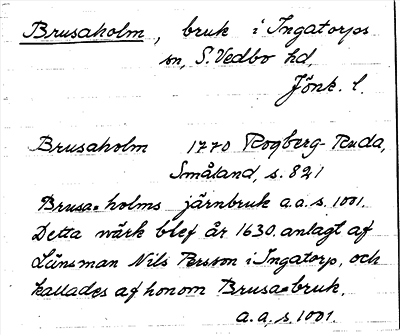 Brusaholm, bruk i Ingatorps
sn, S. Vedbo hd,
Jönk. l.
Brusaholm 1770 Rogberg-Ruda,
Småland, s. 821
Brusa-holms järnbruk a.a. s. 1001.
Detta wärk blef år 1630. anlagt af
Länsman Nils Persson i Ingatorp, och
kallades af honom Brusa-bruk.
a.a, s. 1001.